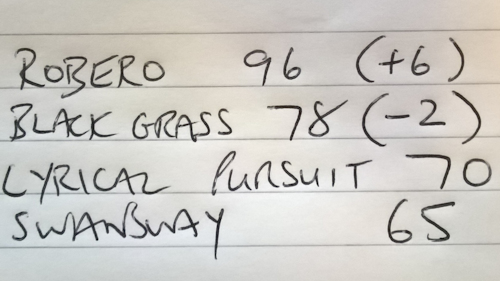 ROBERO 96 (+6)
BLACK GRASS 78 (-2)
LYRICAL PURSUIT 70
SWANSWAY 65